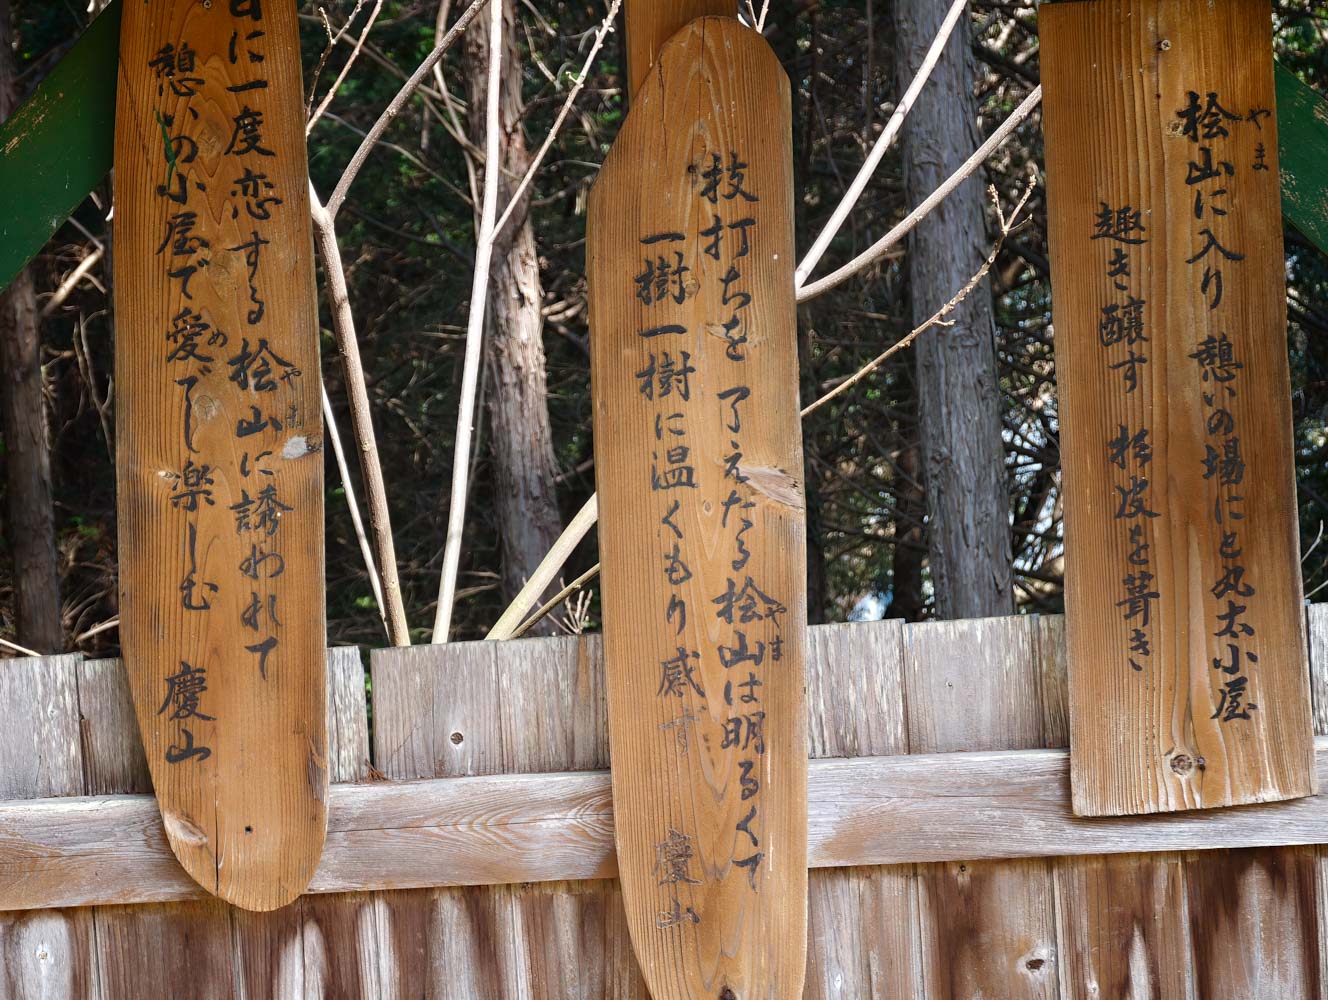 桧山に入り 憩いの場にと丸太小屋
やま
趣き醸す 桧皮を葺き
枝打ちを 了えたる桧山は明るくて
やま
一樹一樹に温くもり感ず 慶山
日に一度恋する桧山に誘われて
やま
憩いの小屋で愛でし楽しむ 慶山
め